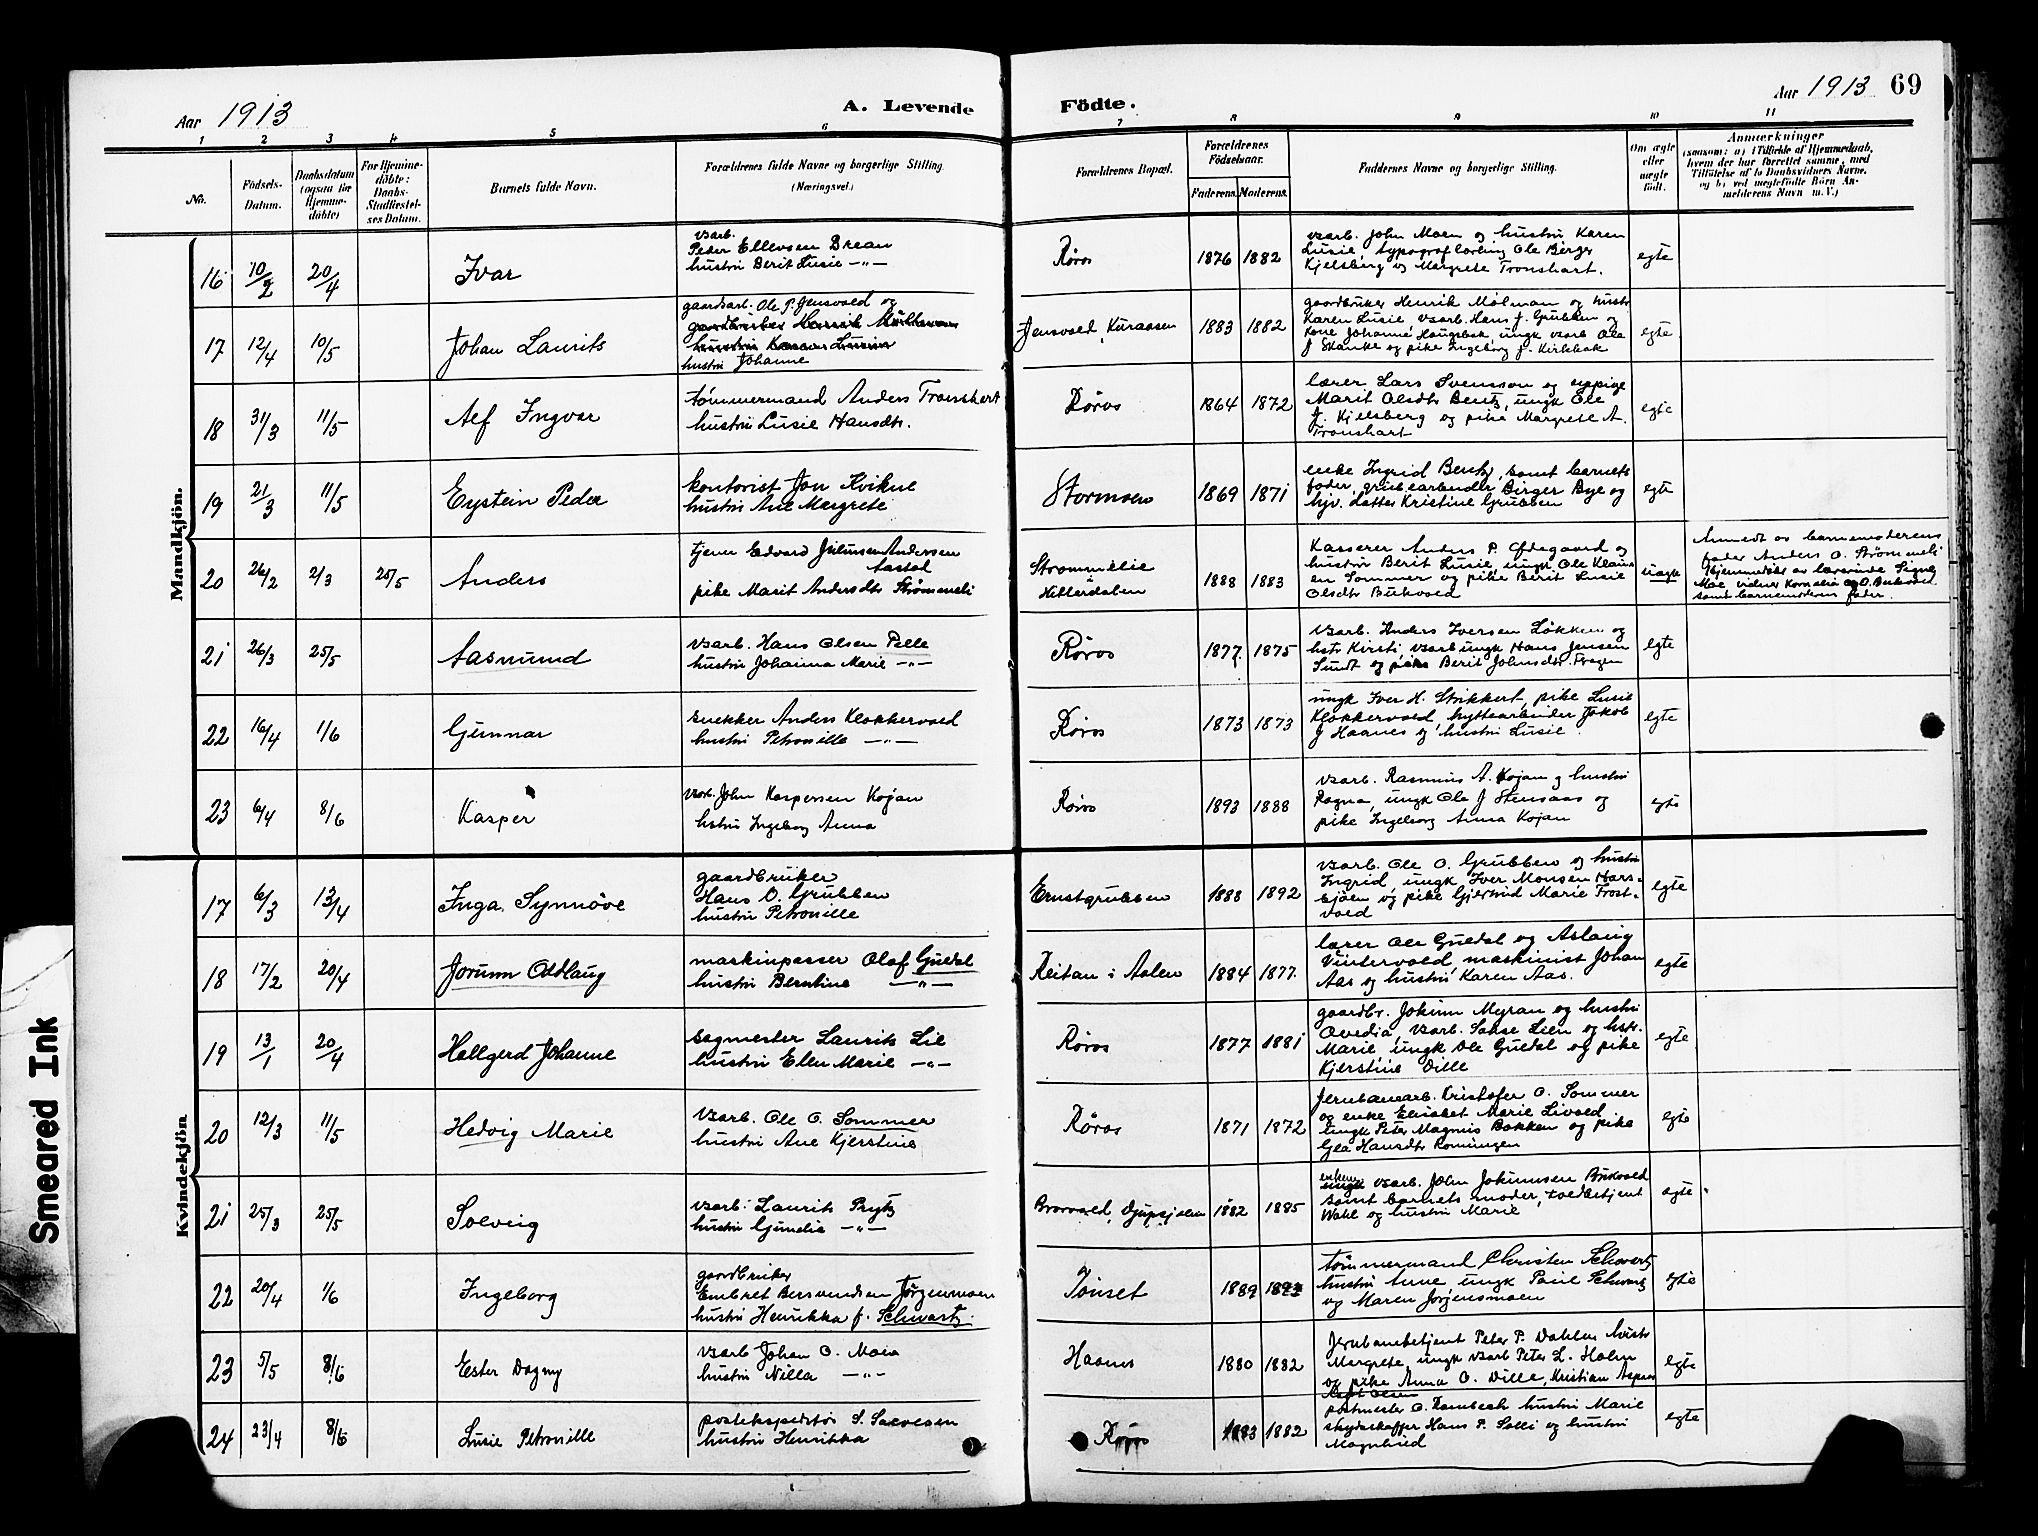 Aar 1913
A. Levende
Födte.
Aar 1913 69
1 2 3 4 5 6 7 8 9 10 11
No.
Födsels-
Datum.
Daabsdatum
(ogsaa for
Hjemme-
døbte)
For Hjemme-
døbte:
Daabs-
Stadfæstel-
ses Datum.
Barnets fulde Navn.
Forældrenes fulde Navne og borgerlige Stilling.
(Næringsvei.)
Forældrenes Bopæl.
Forældrenes
Födselsaar.
Faderens. Moderens.
Faddernes Navne og borgerlige Stilling.
Om ægte
eller
uægte
født.
Anmærkninger
(saasom: a) i Tilfælde af Hjemmedaab,
hvem der har forrettet samme, med
Tilføielse af to Daabsvidners Navne,
og b) ved uægtefødte Börn An-
melderens Navn m. V.)
Mandkjön.
16 10/2 20/4 Ivar
vsarb.
Peder Ellevsen Brean
hustru Berit Lusie -"-
Røros 1876 1882
vsarb. John Moen og hustru Karen
Lusie, typograflærling Ole Birger
Kjelsberg og Margrete Tronshart.
egte
17 12/4 10/5 Johan Laurits
gaardsarb. Ole P. Jensvold og
hustru Johanne
Jensvold, Kuraasen 1883 1882
gaardbruker Henrik Mølman og hustr
Karen Lusie vsarb. Hans J. Grubben og
kone Johanne Haugbak, ungk vsarb Ole
J Skanke og pike Ingeborg J. Kirkbak
egte
18 31/3 11/5 Alf Ingvar
tømmermand Anders Tronshart
hustru Lusie Hansdtr.
Røros 1864 1872
lærer Lars Svensson og
Marit Olsdtr Bentz, ungk Ole
J. Kjelsberg og pike Margrete A.
Tronshart
egte
19 21/3 11/5 Eystein Peder
kontorist Jon Kvikne
hustru Ane Margrete
Stormoen 1869 1871
enke Ingrid Bentz, samt barnets
fader, grubearbeider Birger Bye og
hjv. Lotte Kristine Grubben
egte
20 26/2 2/3 25/5 Anders
tjener Edvard Andersen
Aastol
pike Marit Andersdtr Strømmeli
Strømmelie
Hitterdalen
1888 1883
Kasserer Anders P. Ødegaard og
hustru Berit Lusie ungk Ole Klaus-
en Sommer og pike Berit Lusie
Olsdtr Bukvold
uægte
Anmeldt av barnemoderens
fader Anders O. Strømmeli
Hjemmedøbt av lærerinde Signe
Moe vidner Kornelia og O. Bukvold
samt barnemoderens fader.
21 26/3 25/5 Aasmund
vsarb. Hans Olsen Pelle
hustru Johanna Marie -"-
Røros 1877 1875
vsarb. Anders Iversen Løkken og
hstr Kirsti, vsarb ungk Hans Jensen
Sundt og pike Berit Johnsdtr. Tragen
egte
22 16/4 1/6 Gunnar
snekker Anders Klokkervold
hustru Petronille -"-
Røros 1873 1873
ungk Iver H. Strikkert, pike Lusie
Klokkervold, hyttearbeider Jakob
J Haanes og hustru Lusie.
egte
23 6/4 8/6 Kasper
vsarb. John Kaspersen Kojan
hstru Ingeborg Anna
Røros 1893 1888
vsarb. Rasmus A. Kojan og hustru
Ragna, ungk Ole J Stensaas og
pike Ingeborg Anna Kojan
egte
Kvindekjön
17 6/3 13/4 Inga Synnöve
gaardbruker
Hans O. Grubben
hustru Petronille
Ernstgrubben 1888 1892
vsarb. Ole O. Grubben og hustru
Ingrid, ungk Iver Monsen Hars-
sjøen og pike Gjertrud Marie Frost-
vold
egte
18 17/2 20/4 Jorunn Oddlaug
maskinpasser Olaf Guldal
hustru Berntine -"-
Reitan i Aalen 1884 1877
lærer Ole Guldal og Aslaug
Vintervold, maskinist Johan
Aas og hustru Karen Aas.
egte
19 13/1 20/4 Hallgerd Johanne
sagmester Laurits Lie
hustru Ellen Marie -"-
Røros 1877 1881
gaardbr. Jokum Myran og hustru
Ovedia, vsarb. Lien og hstr.
Marie, ungk Ole Guldal og pike
Kjerstine Dille
egte
20 12/3 11/5 Hedvig Marie
vsarb. Ole O. Sommer
hustru Ane Kjerstine
Røros 1871 1872
Jernbanearb. Kristofer O. Sommer
og enke Elisabet Marie Livold
ungk Peter Magnus Bakken og pike
Gea Hansdtr Romungen
egte
21 25/3 25/5 Solveig
vsarb. Laurits Prytz
hustru Gunelie -"-
Brovold, Djupsjøen 1882 1885
enkem. vsarb. John Johnsen Bukvold
samt barnets moder, toldbetjent
Wahl og hustru Marie
egte
22 20/4 1/6 Ingeborg
gaardbruker
Embret Bersvendsen Jörgenmoen
hustru Henrikka f. Schwartz.
Tönset 1889
tømmermand Christen Schwartz
hustru Anne ungk Paul Schwartz
og Maren Jorgensmoen
egte
23 5/5 8/6 Ester Dagny
vsarb Johan O. Moen
hustru Nilla -"-
Haanes 1880 1882
Jernbanebetjent Peter P. Dahlen hustr
Margrete, ungk vsarb Peter L. Holm
og pike Anna O. Dille, Kristian Aspaas
egte
24 23/4 8/6 Lusie Petronille
postekspeditør S. Salvesen
hustru Henrikka
Røros 1883 1882
postmester O. Rambech hustru Marie
skydsskaffer Hans P. Selli og hustru
Magnhild
egte
Smeared Ink